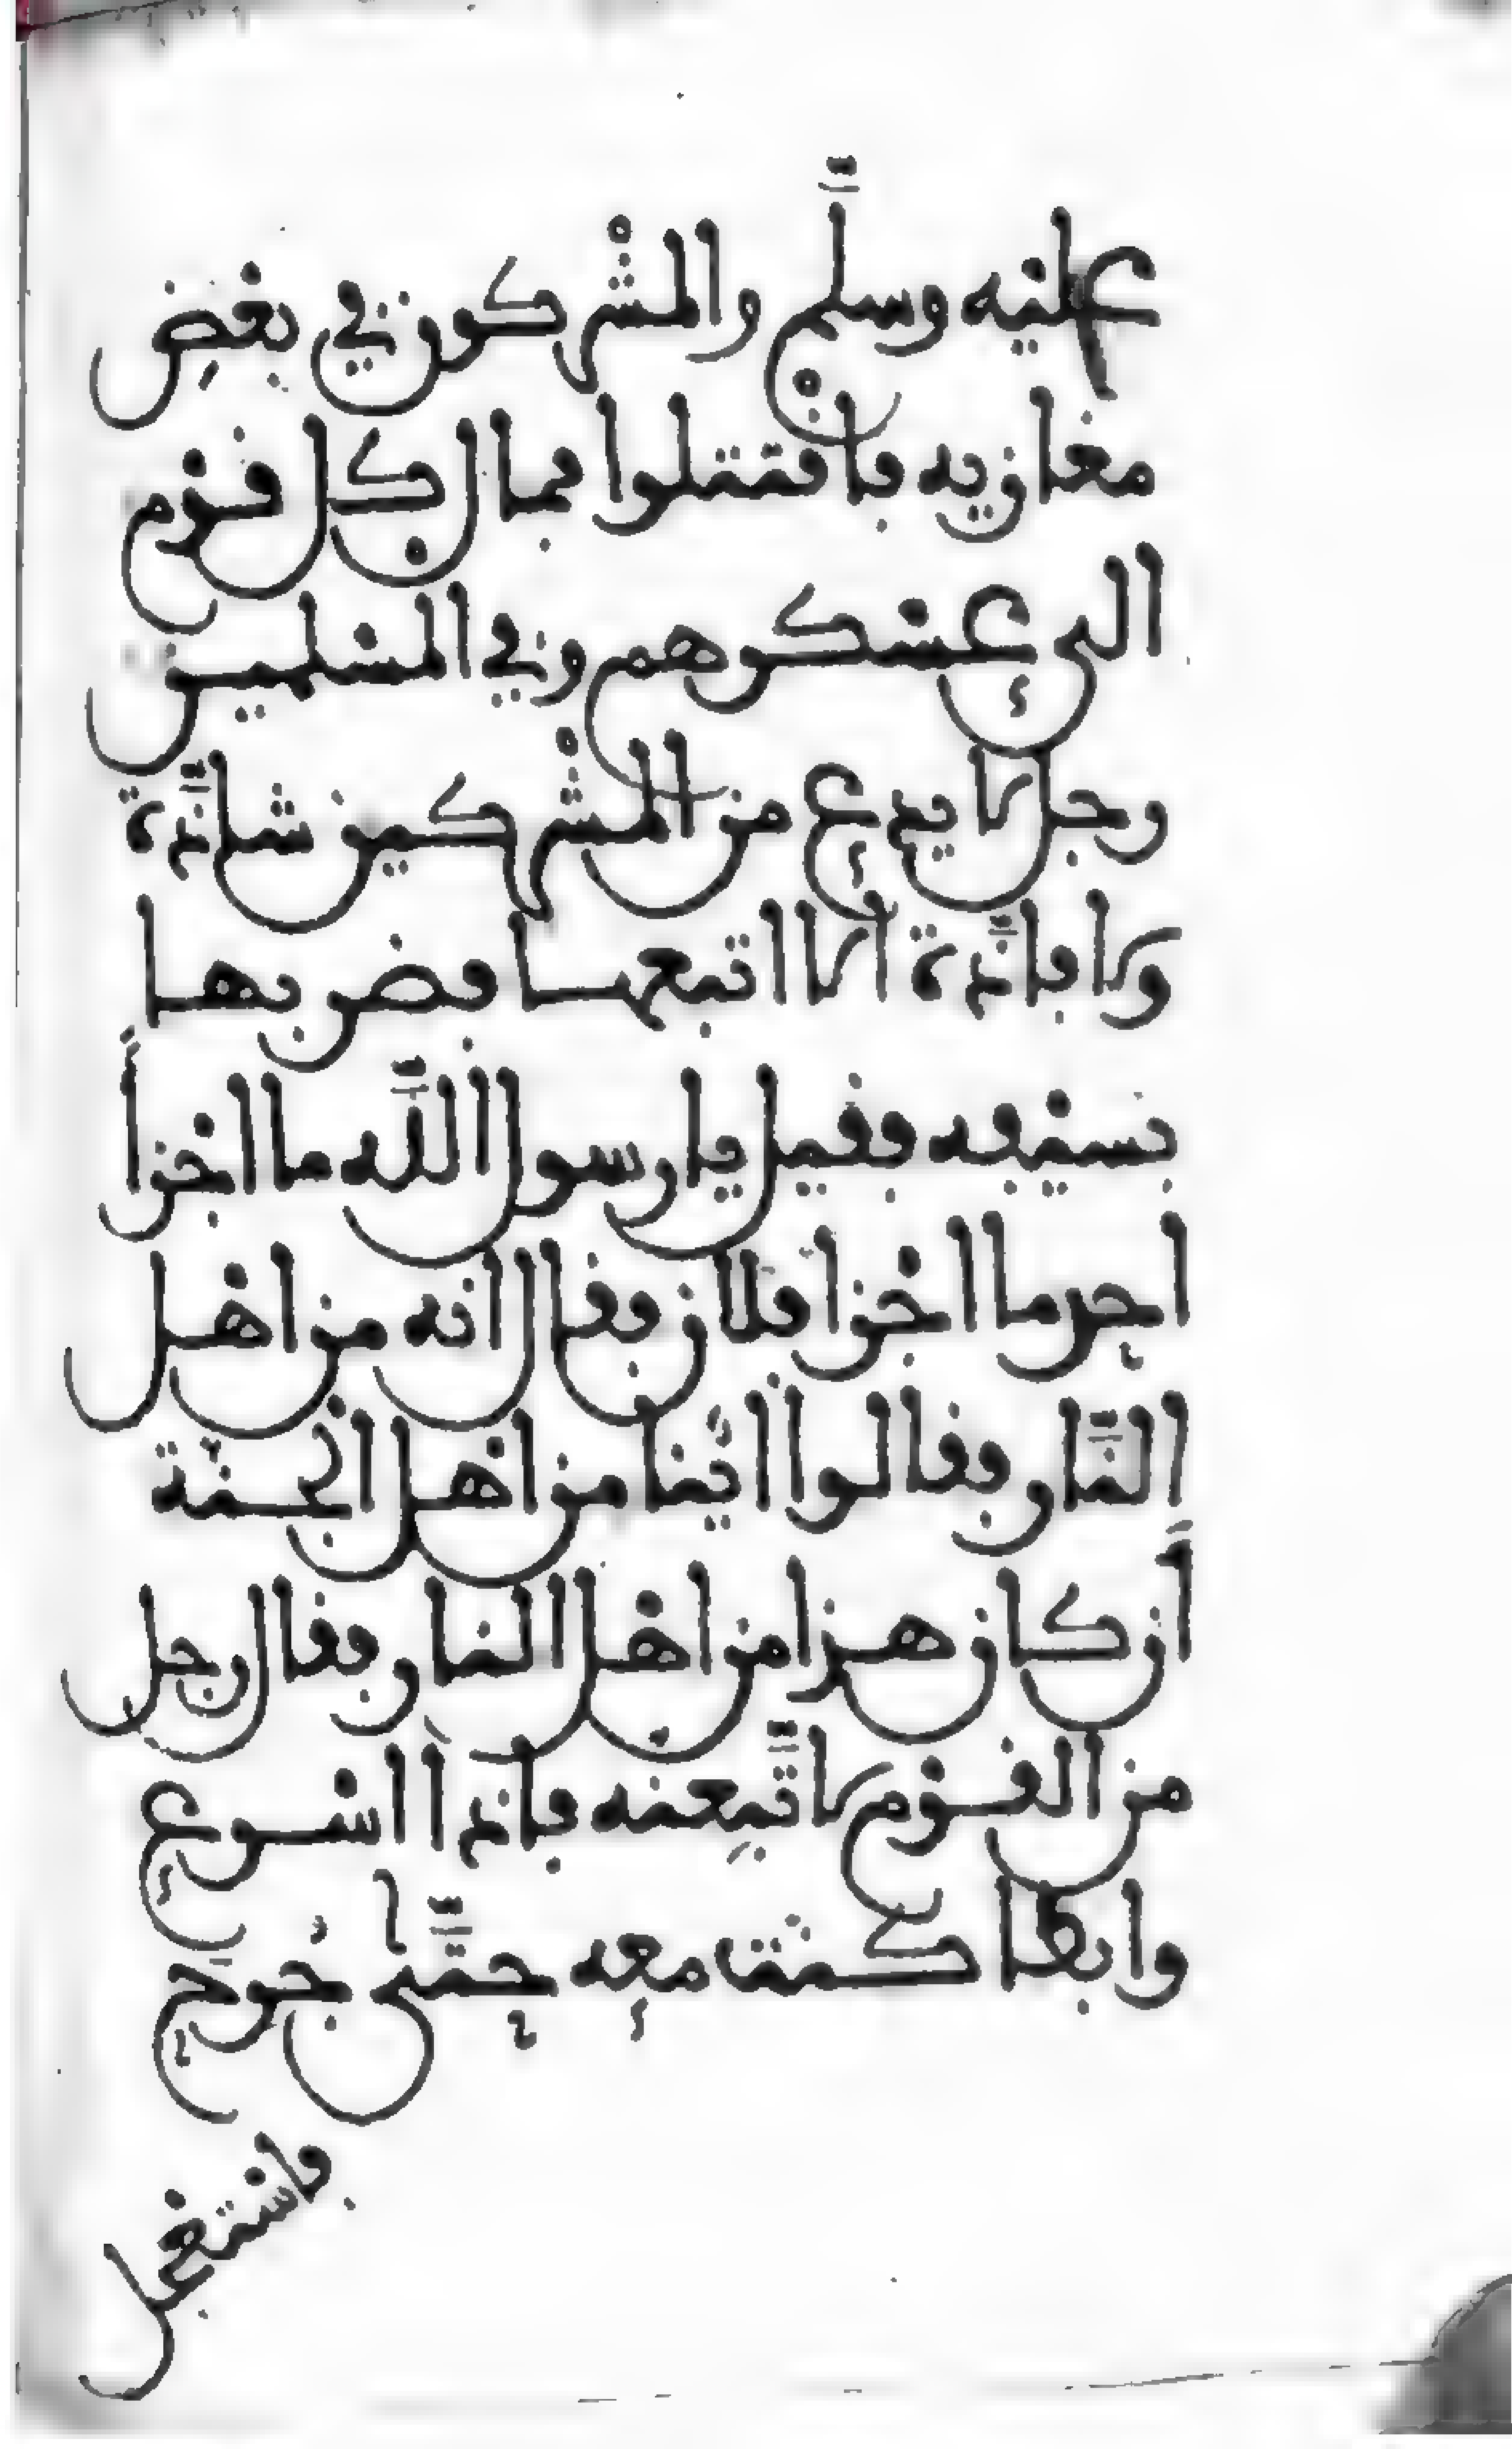 عليه وسلَّم والمشْركون في بعْضِ
مغازيه فاقتتلوا فمال كل قوم
الى عسكرهم وفي المسلمين
رجل لا يدع من المشْركين شاذَّة
ولا فاذَّة الا اتبعها فضربها
بسيفه فقيل يا رسول اللَّه ما اجزأ
احد ما اجزا فلان فقال انه من اهل
النَّار فقالوا ايُّنا من اهل الجنة
أن كان هذا من اهل النار فقال رجل
من القوم لاتَّبعِنه فاذا اسرع
وابطا كنت معه حتَّى جُرح
فاستعجل